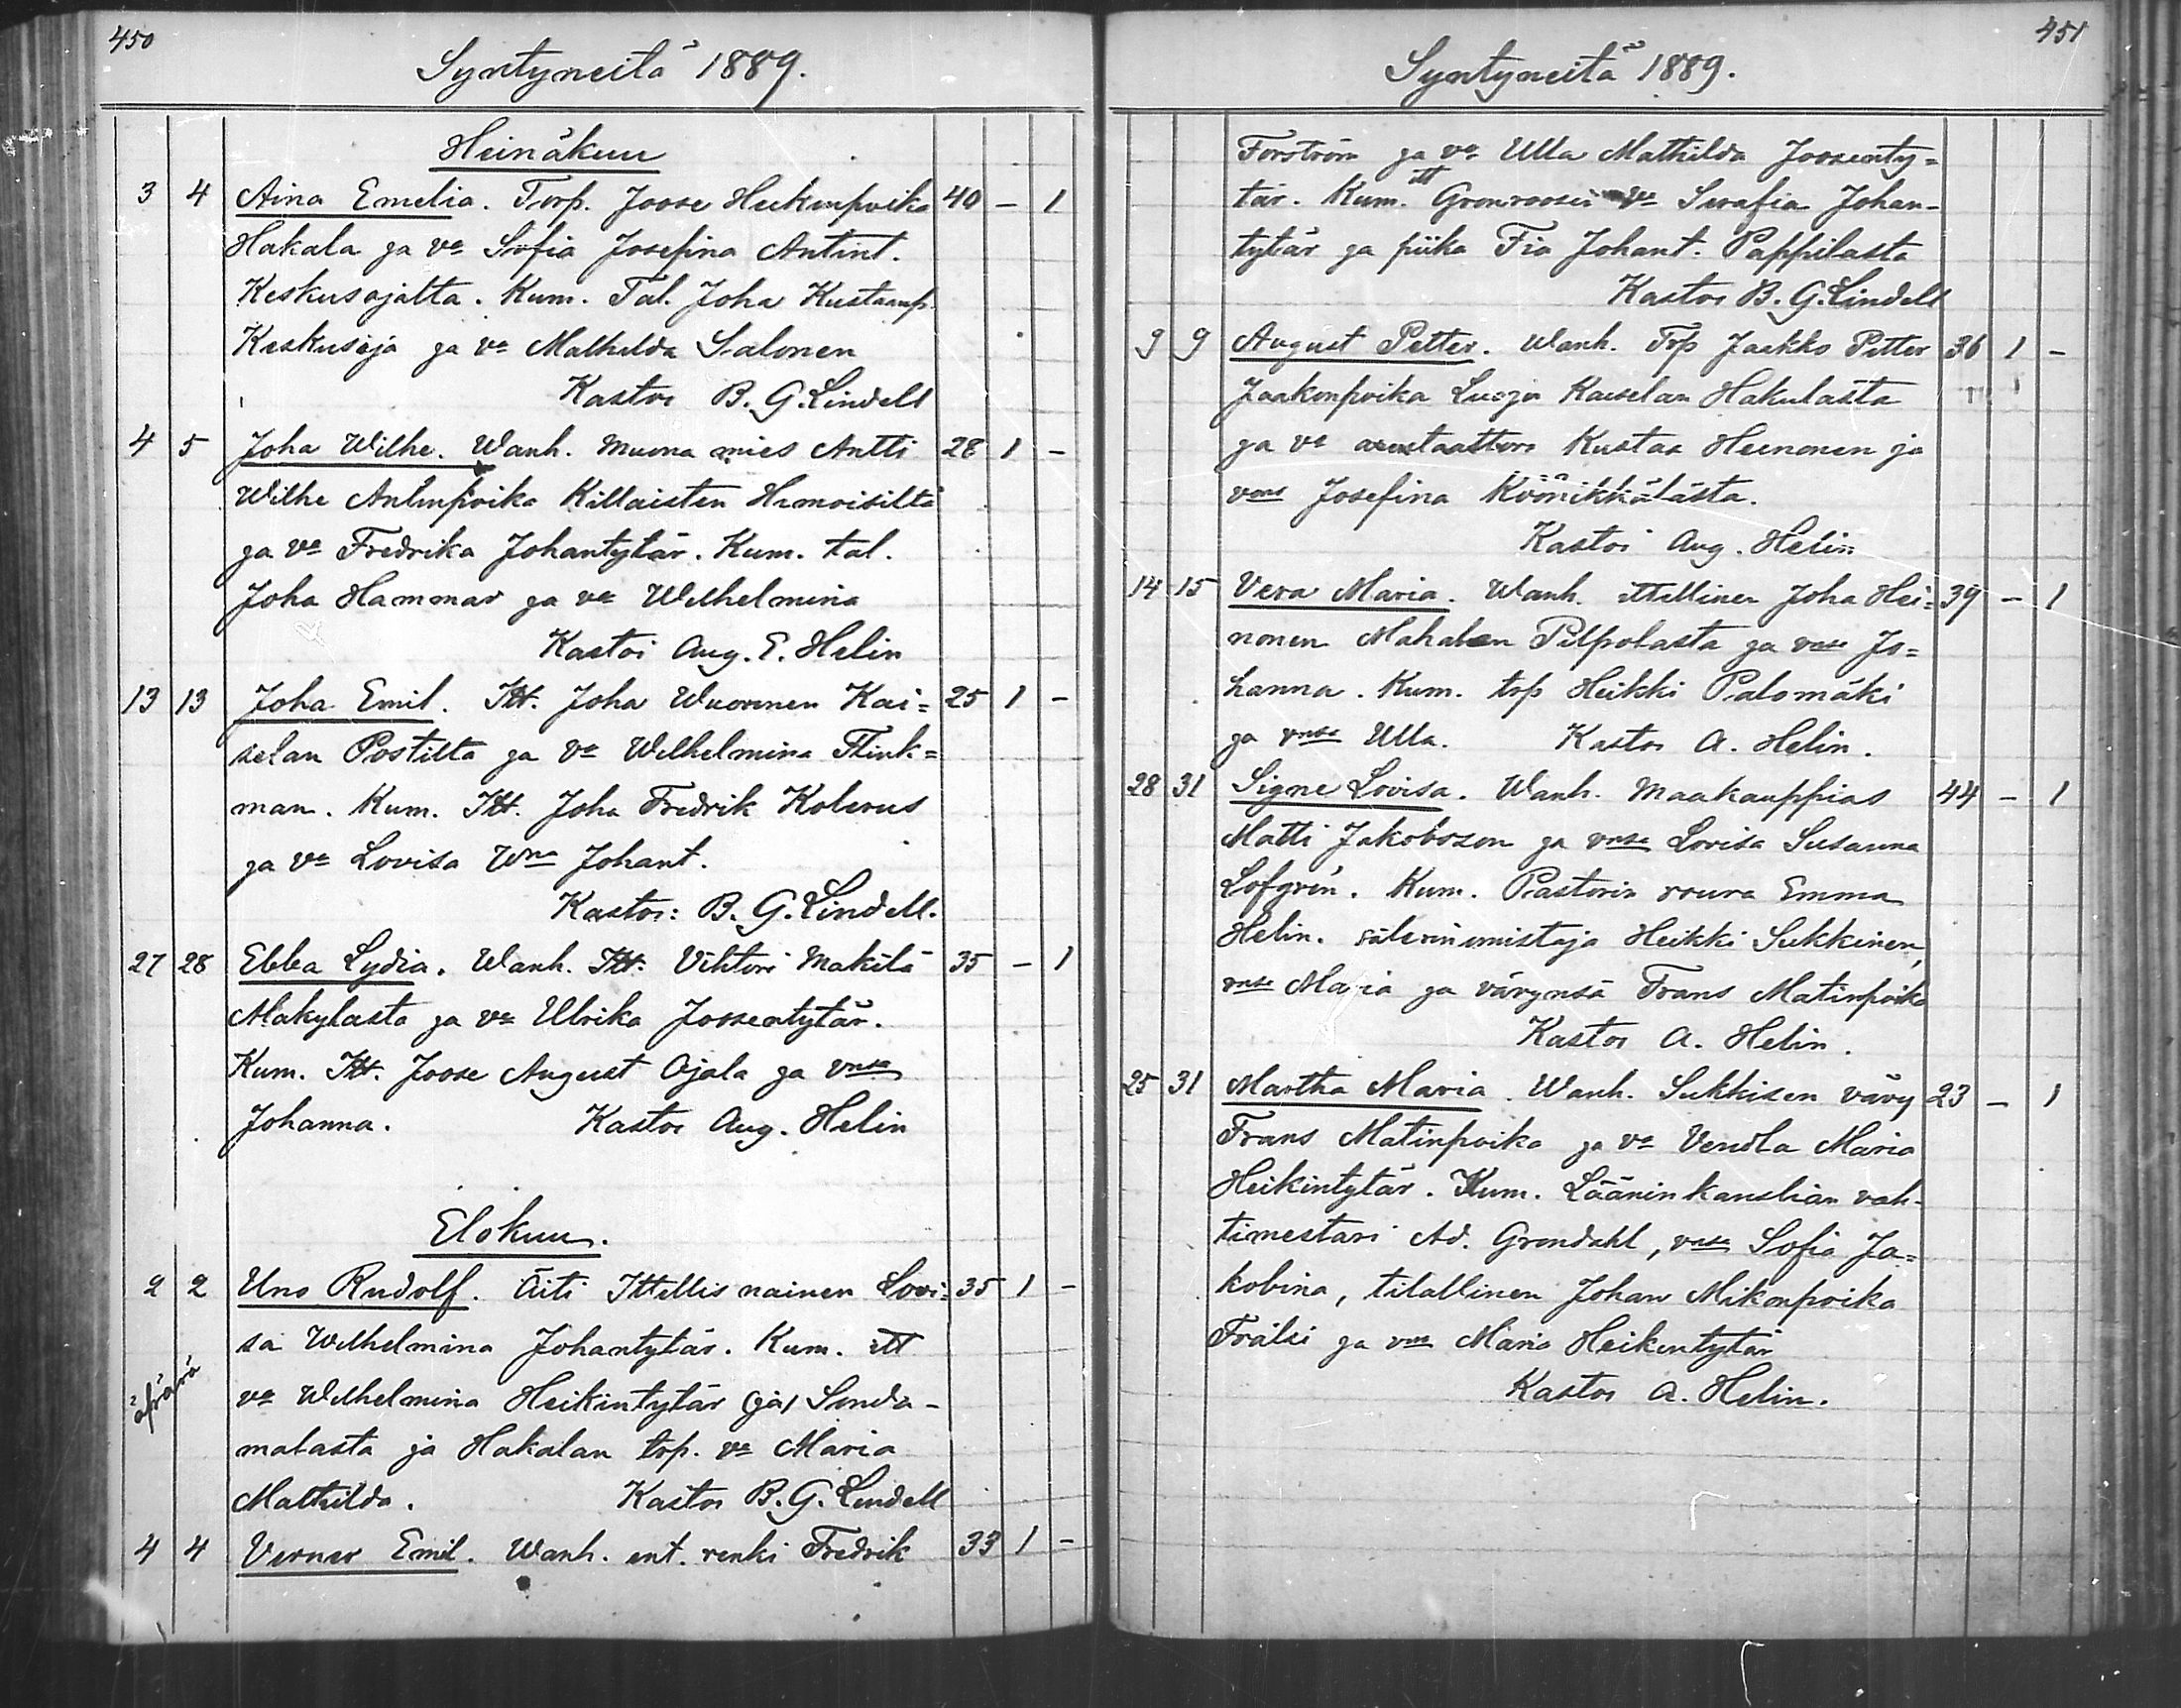 450
Syntyneitä 1889.
Heinäkuu
3 4 Aina Emelia. Torp. Joose Heikinpoika 40 – 1
Hakala ja va Sofia Josefina Antint.
Keskusajalta. Kum. Tal. Joha Kustaanp.
Keskusaja ja va Mathilda Salonen
Kastoi B. G. Lindell
4 5 Joha Wilhe. Wanh. Muona mies Antti 28 1 –
Wilhe Antinpoika Killaisten
ja va Fredrika Johantytär. Kum. tal.
Joha Hammar ja va Wilhelmina
Kastoi Aug. E. Helin
13 13 Joha Emil. Itt. Joha Wuorinen Kai= 25 1 –
selan Postilta ja va Wilhelmina Flink=
man. Kum. Itt. Joha Fredrik Kolerus
ja va Lovisa Wna Johant.
Kastoi: B. G. Lindell.
27 28 Ebba Lydia. Wanh. Itt. Vihtori Makilä 35 – 1
Makylasta ja va Ulrika Joosentytär.
Kum. Itt. Joose August Ojala ja vnsa
Johanna. Kastoi Aug. Helin
Elokuu.
2 2 Uno Rudolf. Äiti Ittellis nainen Lovi= 35 1 –
sa Wilhelmina Johantytär. Kum. itt
äpärä
va Wilhelmina Heikintytär (ja) Sonda-
malasta ja Hakalan torp. va Maria
Mathilda. Kastoi B. G. Lindell
4 4 Verner Emil. Wanh. ent. renki Fredrik 33 1 –
451
Syntyneitä 1889.
Forström ja va Ulla Mathilda Joosenty=
tär. Kum. itt Gronroosin va Serafia Johan-
tytär ja piika Fia Johant. Pappilasta
Kastoi B. G. Lindell
9 9 August Petter. Wanh. Trp Jaakko Petter 36 1 –
Jaakonpoika Luoja Kaiselan Hakulasta
ja va Kustaa Heinonen ja
vons Josefina Köönikkälästa.
Kastoi Aug. Helin
14 15 Vera Maria. Wanh. ittellinen Joha Hei= 39 – 1
nonen Mahalan Pilpolasta ja vnsa Jo=
hanna. Kum. trp Heikki Palomäki
ja vnsa Ulla. Kastoi A. Helin.
28 31 Signe Lovisa. Wanh. Maakauppias 44 – 1
Matti Jakobsson ja vnsa Lovisa Susanna
Lofgrén. Kum. Pastorin rouva Emma
Helin. Heikki Sukkinen,
vnsa Maria ja vävynsä Frans Matinpoika
Kastoi A. Helin.
25 31 Martha Maria. Wanh. Sukkisen vävy 23 – 1
Frans Matinpoika ja va Vendla Maria
Heikintytär. Kum. Läänin kanslian vah-
timestari Ad. Grondahl, vnsa Sofia Ja=
kobina, tilallinen Johan Mikonpoika
Frälsi ja vns Maria Heikintytär
Kastoi A. Helin.